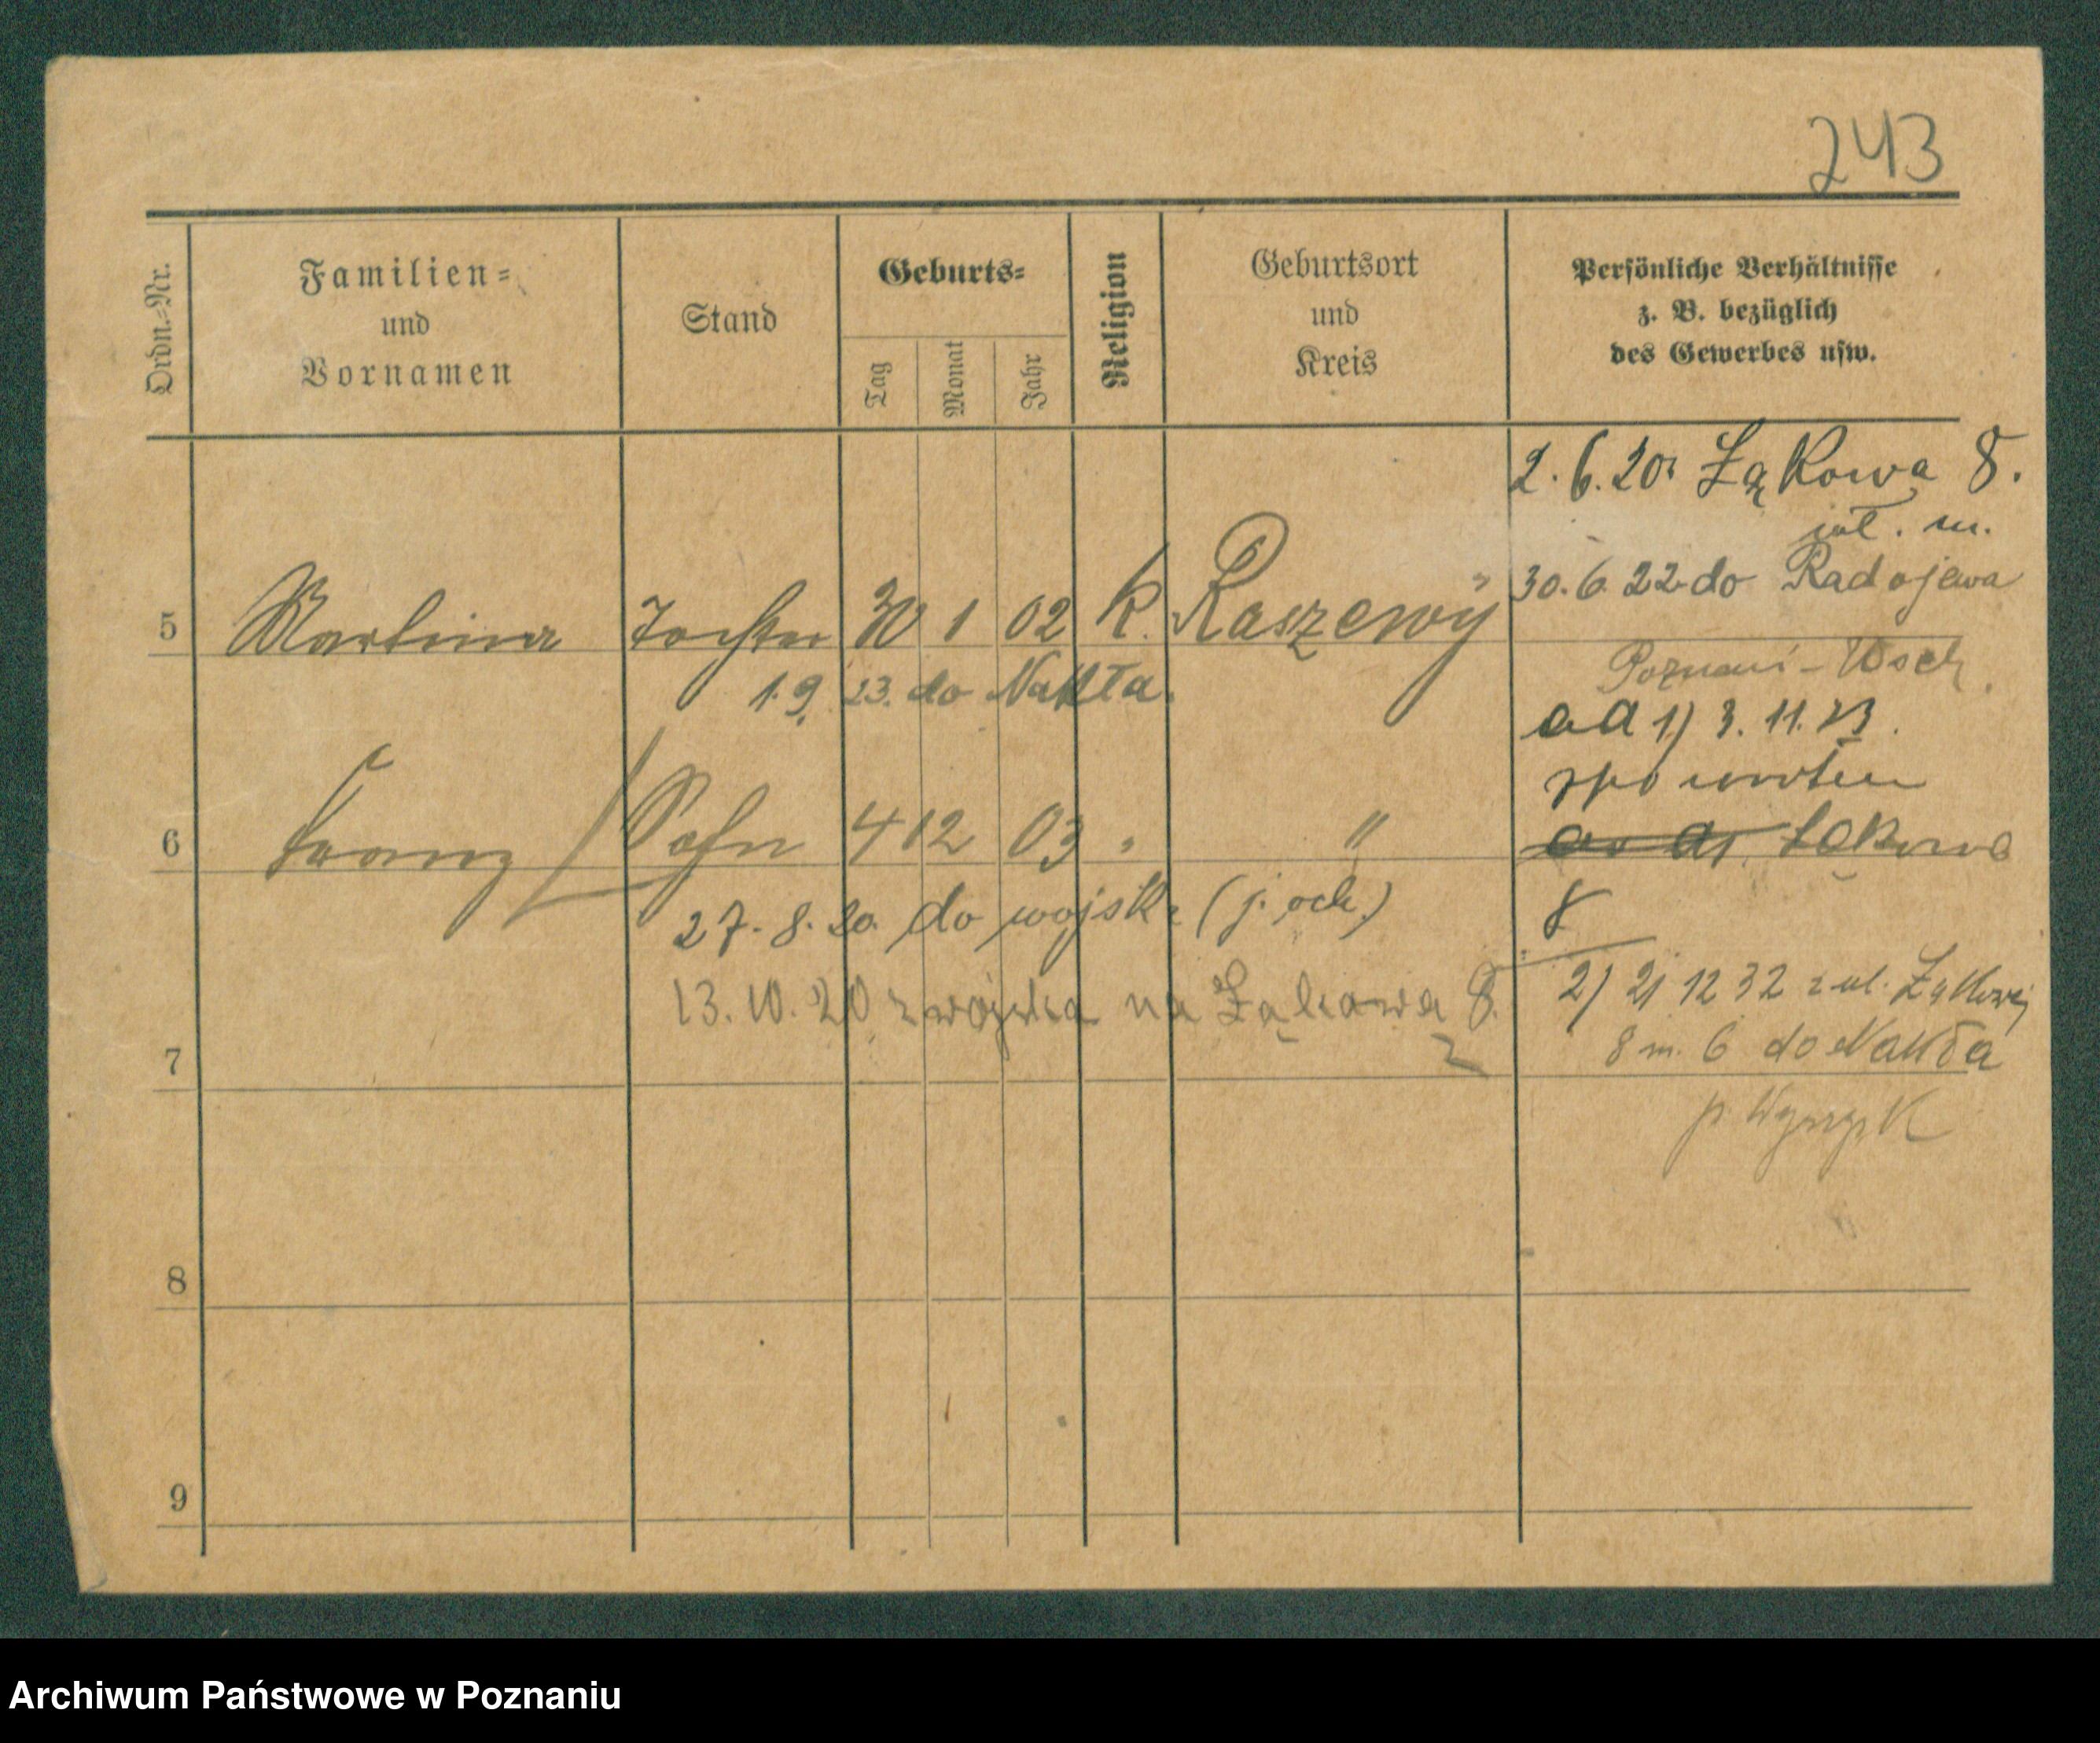 243
Ordn.-Nr.
Familien-
und
Vornamen
Stand
Geburts-
Tag
Monat
Jahr
Religion
Geburtsort
und
Kreis
Persönliche Verhältnisse
z. B. bezüglich
des Gewerbes usw.
2. 6. 20 Łąkowa 8.
wł. m.
30. 6. 22 do Radojewa
Poznań - Wsch.
5 Martina Tochter 30 1 02 k. Raszewy
1. 9. 23. do Nakła.
ad 1) 3. 11. 23.
spowrotem
6 Franz Sohn 4 12 03 " "
Łąkowa
8
27. 8. 20. do wojska (j. och.)
13. 10. 20 z wojska na Łąkowa 8.
2) 21 12 32 z ul. Łąkowej
8 m. 6 do Nakła
p. Wyrzysk
7
8
9
Archiwum Państwowe w Poznaniu